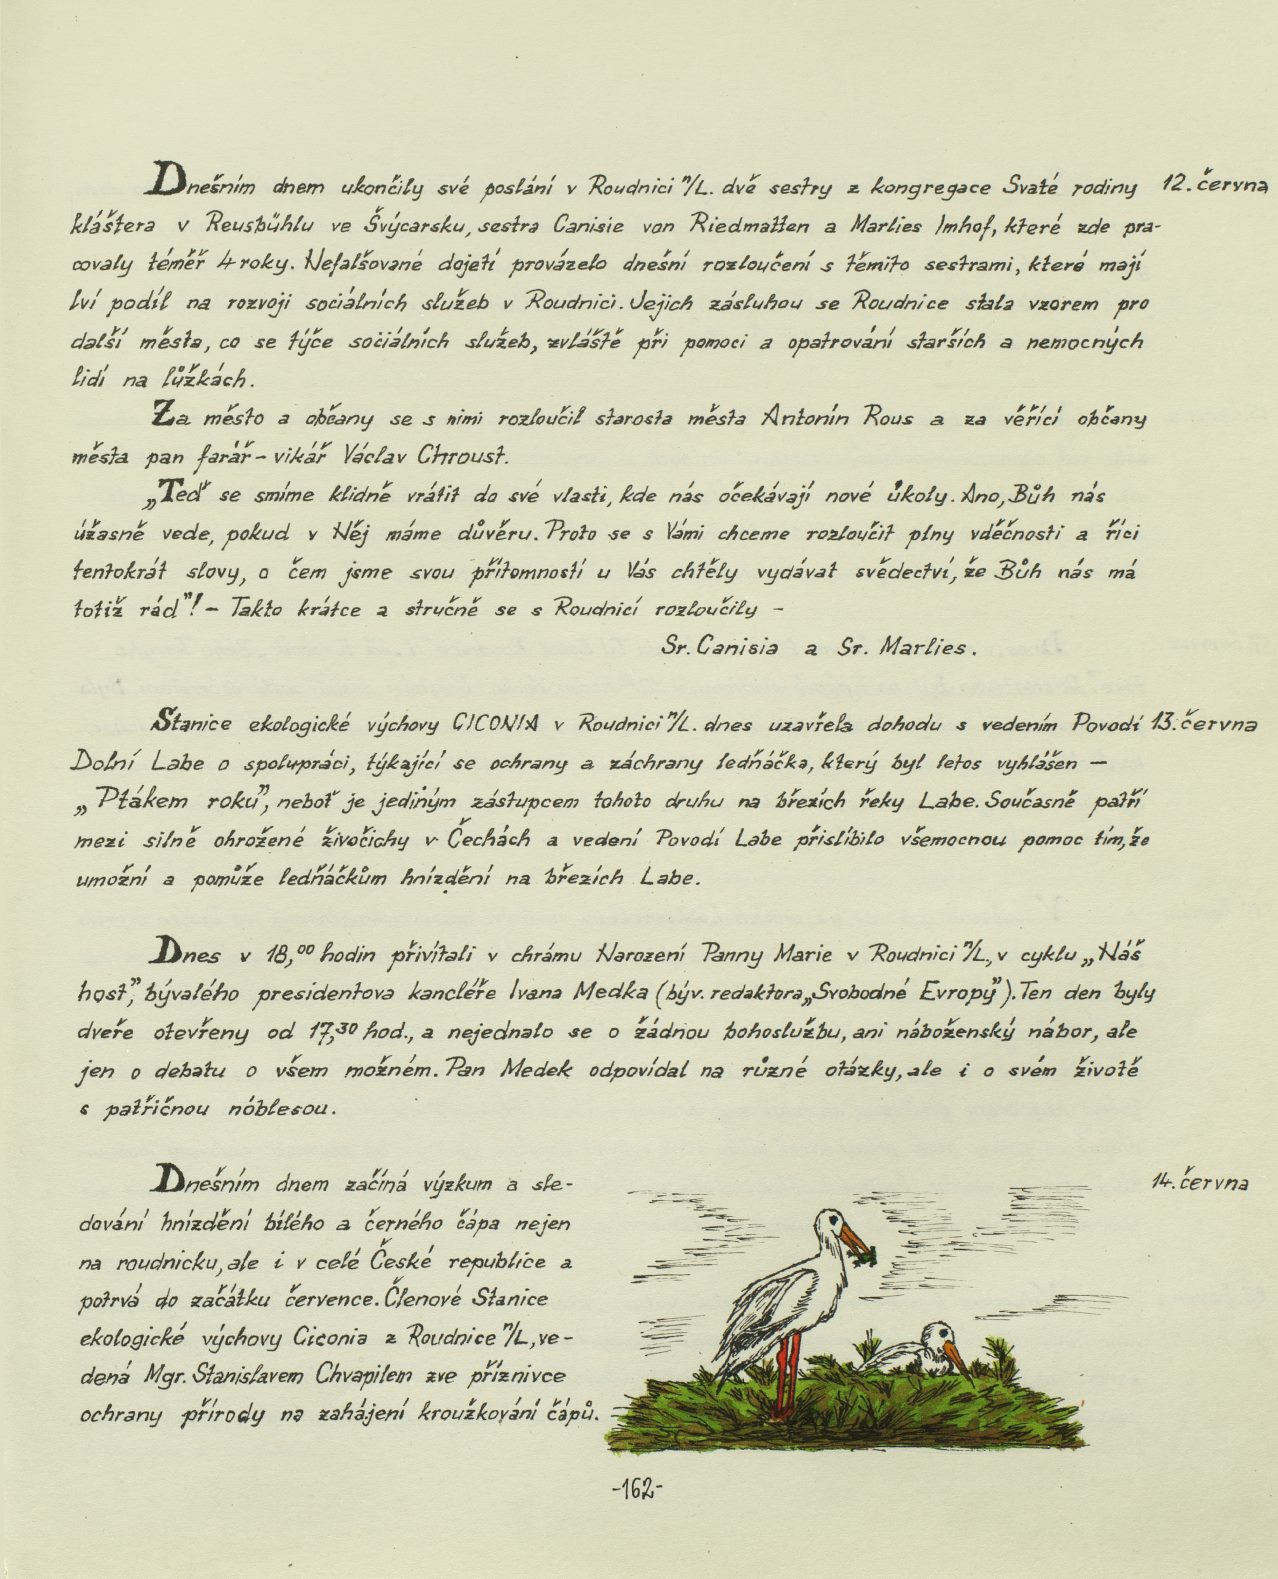 Dnešním dnem ukončily své poslání v Roudnici n/L. dvě sestry z kongregace Svaté rodiny 12. června
kláštera v Reusbühlu ve Švýcarsku, sestra Canisie von Riedmatten a Marlies Imhof, které zde pra-
covaly téměř 4 roky. Nefalšované dojetí provázelo dnešní rozloučení s těmito sestrami, které mají
lví podíl na rozvoji sociálních služeb v Roudnici. Jejich zásluhou se Roudnice stala vzorem pro
další města, co se týče sociálních služeb, zvláště při pomoci a opatrování starších a nemocných
lidí na lůžkách.
Za město a občany se s nimi rozloučil starosta města Antonín Rous a za věřící občany
města pan farář - vikář Václav Chroust.
„Teď se smíme klidně vrátit do své vlasti, kde nás očekávají nové úkoly. Ano, Bůh nás
úžasně vede, pokud v Něj máme důvěru. Proto se s Vámi chceme rozloučit plny vděčnosti a říci
tentokrát slovy, o čem jsme svou přítomností u Vás chtěly vydávat svědectví, že Bůh nás má
totiž rád"! - Takto krátce a stručně se s Roudnicí rozloučily -
Sr. Canisia a Sr. Marlies.
Stanice ekologické výchovy CICONIA v Roudnici n/L. dnes uzavřela dohodu s vedením Povodí 13. června
Dolní Labe o spolupráci, týkající se ochrany a záchrany ledňáčka, který byl letos vyhlášen —
„Ptákem roku", neboť je jediným zástupcem tohoto druhu na březích řeky Labe. Současně patří
mezi silně ohrožené živočichy v Čechách a vedení Povodí Labe přislíbilo všemocnou pomoc tím, že
umožní a pomůže ledňáčkům hnízdění na březích Labe.
Dnes v 18,00 hodin přivítali v chrámu Narození Panny Marie v Roudnici n/L., v cyklu „Náš
host", bývalého presidentova kancléře Ivana Medka (býv. redaktora „Svobodné Evropy"). Ten den byly
dveře otevřeny od 17,30 hod., a nejednalo se o žádnou bohoslužbu, ani náboženský nábor, ale
jen o debatu o všem možném. Pan Medek odpovídal na různé otázky, ale i o svém životě
s patřičnou nóblesou.
Dnešním dnem začíná výzkum a sle- 14. června
dování hnízdění bílého a černého čápa nejen
na roudnicku, ale i v celé České republice a
potrvá do začátku července. Členové Stanice
ekologické výchovy Ciconia z Roudnice n/L, ve-
dená Mgr. Stanislavem Chvapilem zve příznivce
ochrany přírody na zahájení kroužkování čápů.
-162-